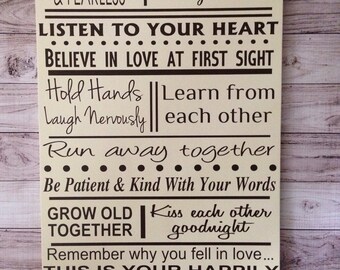 & FEARLESS
LISTEN TO YOUR HEART
BELIEVE IN LOVE AT FIRST SIGHT
Hold Hands
Laugh Nervously
Learn from
each other
Run away together
Be Patient & Kind With Your Words
GROW OLD
TOGETHER
Kiss each other
goodnight
Remember why you fell in love...
THIS IS YOUR HAPPILY